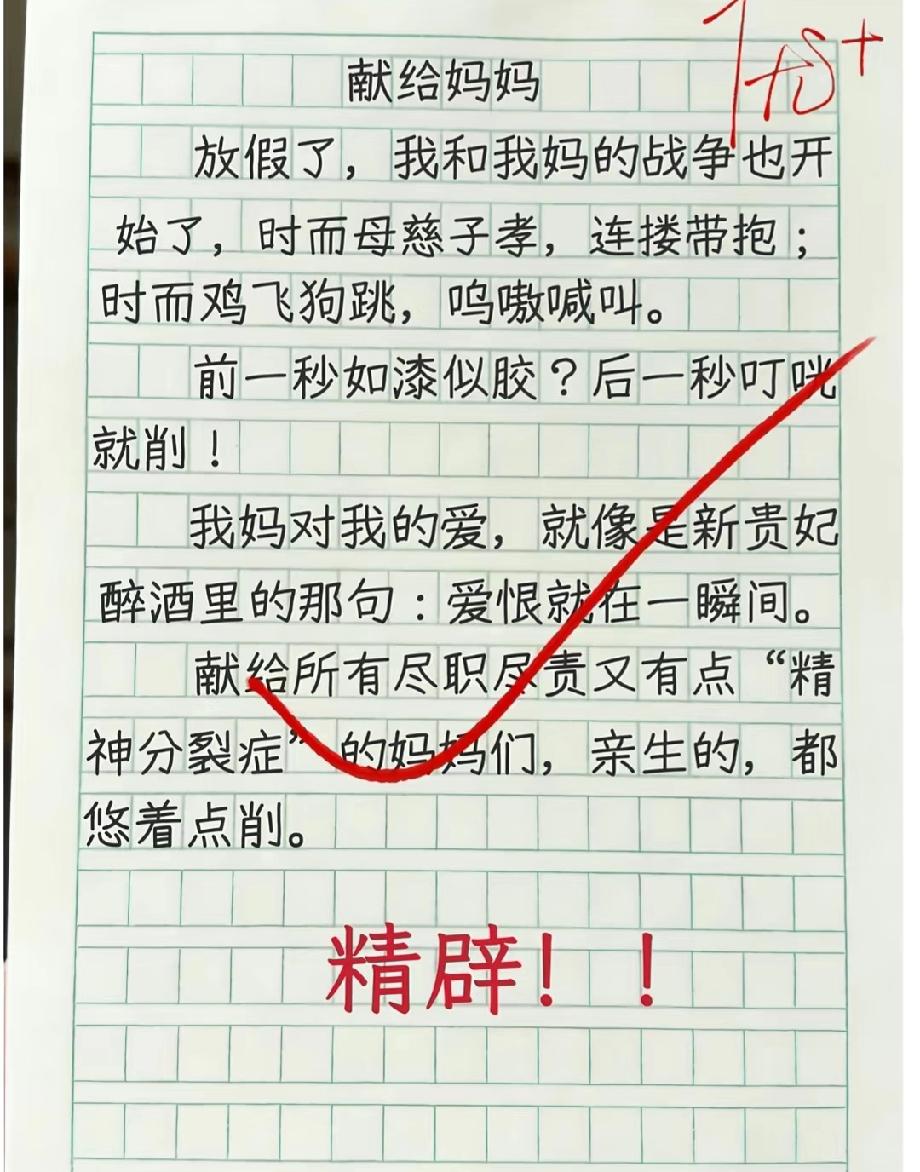 优+
献给妈妈
放假了，我和我妈的战争也开
始了，时而母慈子孝，连搂带抱；
时而鸡飞狗跳，呜嗷喊叫。
前一秒如漆似胶？后一秒叮咣
就削！
我妈对我的爱，就像是新贵妃
醉酒里的那句：爱恨就在一瞬间。
献给所有尽职尽责又有点“精
神分裂症”的妈妈们，亲生的，都
悠着点削。
精辟！！